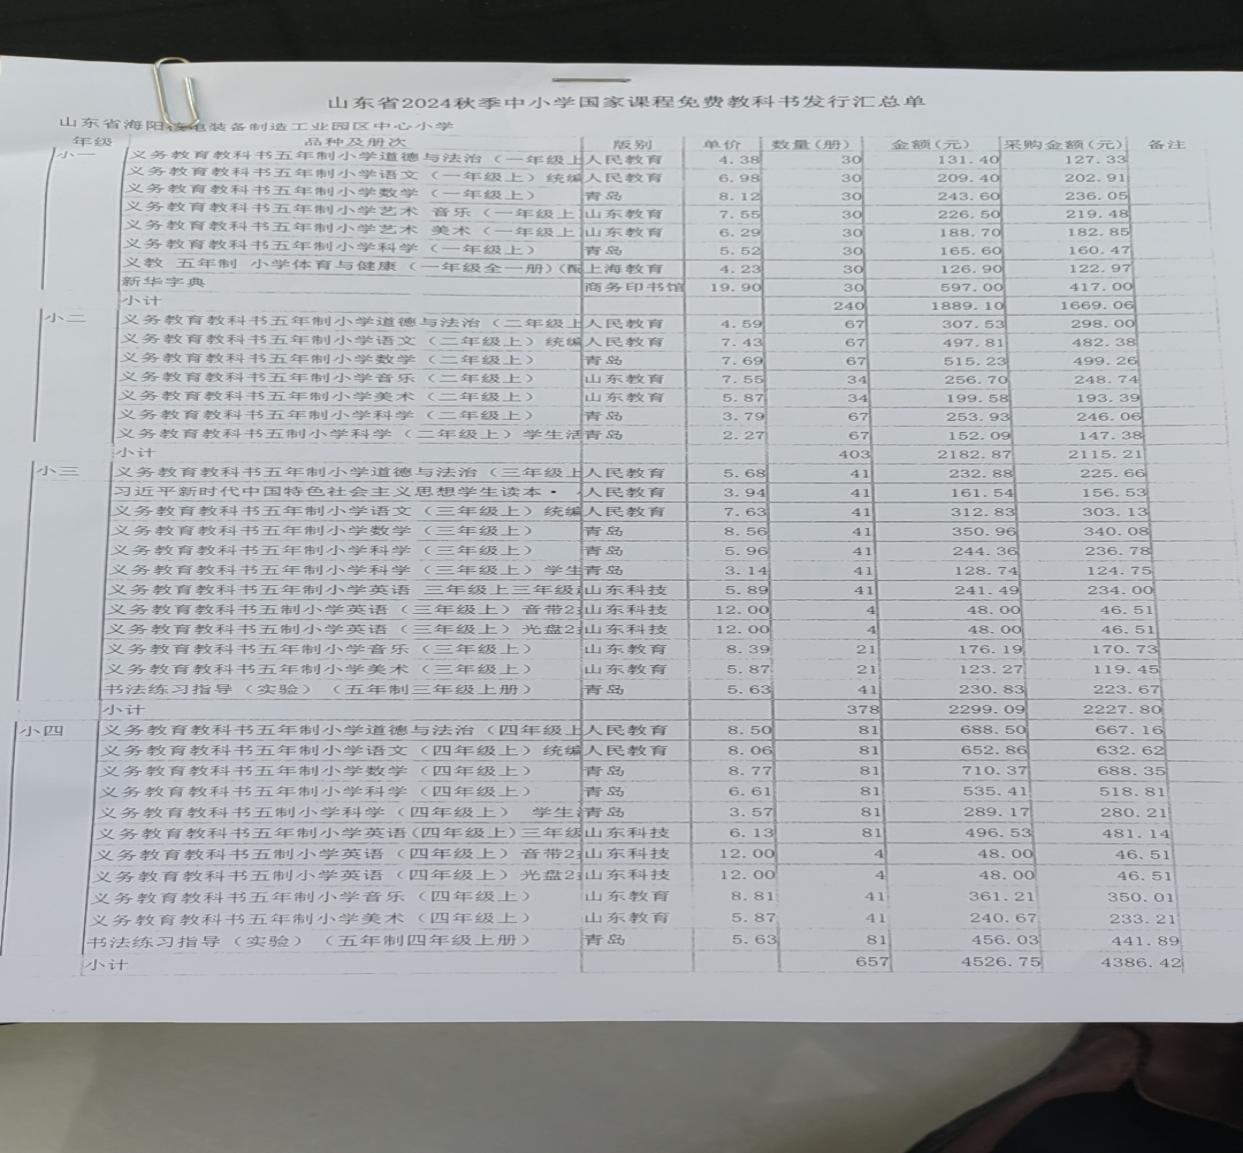 山东省2024秋季中小学国家课程免费教科书发行汇总单
山东省海阳核电装备制造工业园区中心小学
年级 品种及册次 版别 单价 数量(册) 金额(元) 采购金额(元) 备注
小一 义务教育教科书五年制小学道德与法治（一年级上 人民教育 4.38 30 131.40 127.33
义务教育教科书五年制小学语文（一年级上）统编 人民教育 6.98 30 209.40 202.91
义务教育教科书五年制小学数学（一年级上） 青岛 8.12 30 243.60 236.05
义务教育教科书五年制小学艺术 音乐（一年级上 山东教育 7.55 30 226.50 219.48
义务教育教科书五年制小学艺术 美术（一年级上 山东教育 6.29 30 188.70 182.85
义务教育教科书五年制小学科学（一年级上） 青岛 5.52 30 165.60 160.47
义教 五年制 小学体育与健康（一年级全一册）(配 上海教育 4.23 30 126.90 122.97
新华字典 商务印书馆 19.90 30 597.00 417.00
小计 240 1889.10 1669.06
小二 义务教育教科书五年制小学道德与法治（二年级上 人民教育 4.59 67 307.53 298.00
义务教育教科书五年制小学语文（二年级上）统编 人民教育 7.43 67 497.81 482.38
义务教育教科书五年制小学数学（二年级上） 青岛 7.69 67 515.23 499.26
义务教育教科书五年制小学音乐（二年级上） 山东教育 7.55 34 256.70 248.74
义务教育教科书五年制小学美术（二年级上） 山东教育 5.87 34 199.58 193.39
义务教育教科书五年制小学科学（二年级上） 青岛 3.79 67 253.93 246.06
义务教育教科书五制小学科学（二年级上）学生活 青岛 2.27 67 152.09 147.38
小计 403 2182.87 2115.21
小三 义务教育教科书五年制小学道德与法治（三年级上 人民教育 5.68 41 232.88 225.66
习近平新时代中国特色社会主义思想学生读本· 人民教育 3.94 41 161.54 156.53
义务教育教科书五年制小学语文（三年级上）统编 人民教育 7.63 41 312.83 303.13
义务教育教科书五年制小学数学（三年级上） 青岛 8.56 41 350.96 340.08
义务教育教科书五年制小学科学（三年级上） 青岛 5.96 41 244.36 236.78
义务教育教科书五年制小学科学（三年级上）学生 青岛 3.14 41 128.74 124.75
义务教育教科书五年制小学英语 三年级上三年级 山东科技 5.89 41 241.49 234.00
义务教育教科书五制小学英语（三年级上）音带2 山东科技 12.00 4 48.00 46.51
义务教育教科书五制小学英语（三年级上）光盘2 山东科技 12.00 4 48.00 46.51
义务教育教科书五年制小学音乐（三年级上） 山东教育 8.39 21 176.19 170.73
义务教育教科书五年制小学美术（三年级上） 山东教育 5.87 21 123.27 119.45
书法练习指导（实验）（五年制三年级上册） 青岛 5.63 41 230.83 223.67
小计 378 2299.09 2227.80
小四 义务教育教科书五年制小学道德与法治（四年级上 人民教育 8.50 81 688.50 667.16
义务教育教科书五年制小学语文（四年级上）统编 人民教育 8.06 81 652.86 632.62
义务教育教科书五年制小学数学（四年级上） 青岛 8.77 81 710.37 688.35
义务教育教科书五年制小学科学（四年级上） 青岛 6.61 81 535.41 518.81
义务教育教科书五制小学科学（四年级上） 学生 青岛 3.57 81 289.17 280.21
义务教育教科书五年制小学英语(四年级上)三年级 山东科技 6.13 81 496.53 481.14
义务教育教科书五制小学英语（四年级上）音带2 山东科技 12.00 4 48.00 46.51
义务教育教科书五制小学英语（四年级上）光盘2 山东科技 12.00 4 48.00 46.51
义务教育教科书五年制小学音乐（四年级上） 山东教育 8.81 41 361.21 350.01
义务教育教科书五年制小学美术（四年级上） 山东教育 5.87 41 240.67 233.21
书法练习指导（实验）（五年制四年级上册） 青岛 5.63 81 456.03 441.89
小计 657 4526.75 4386.42